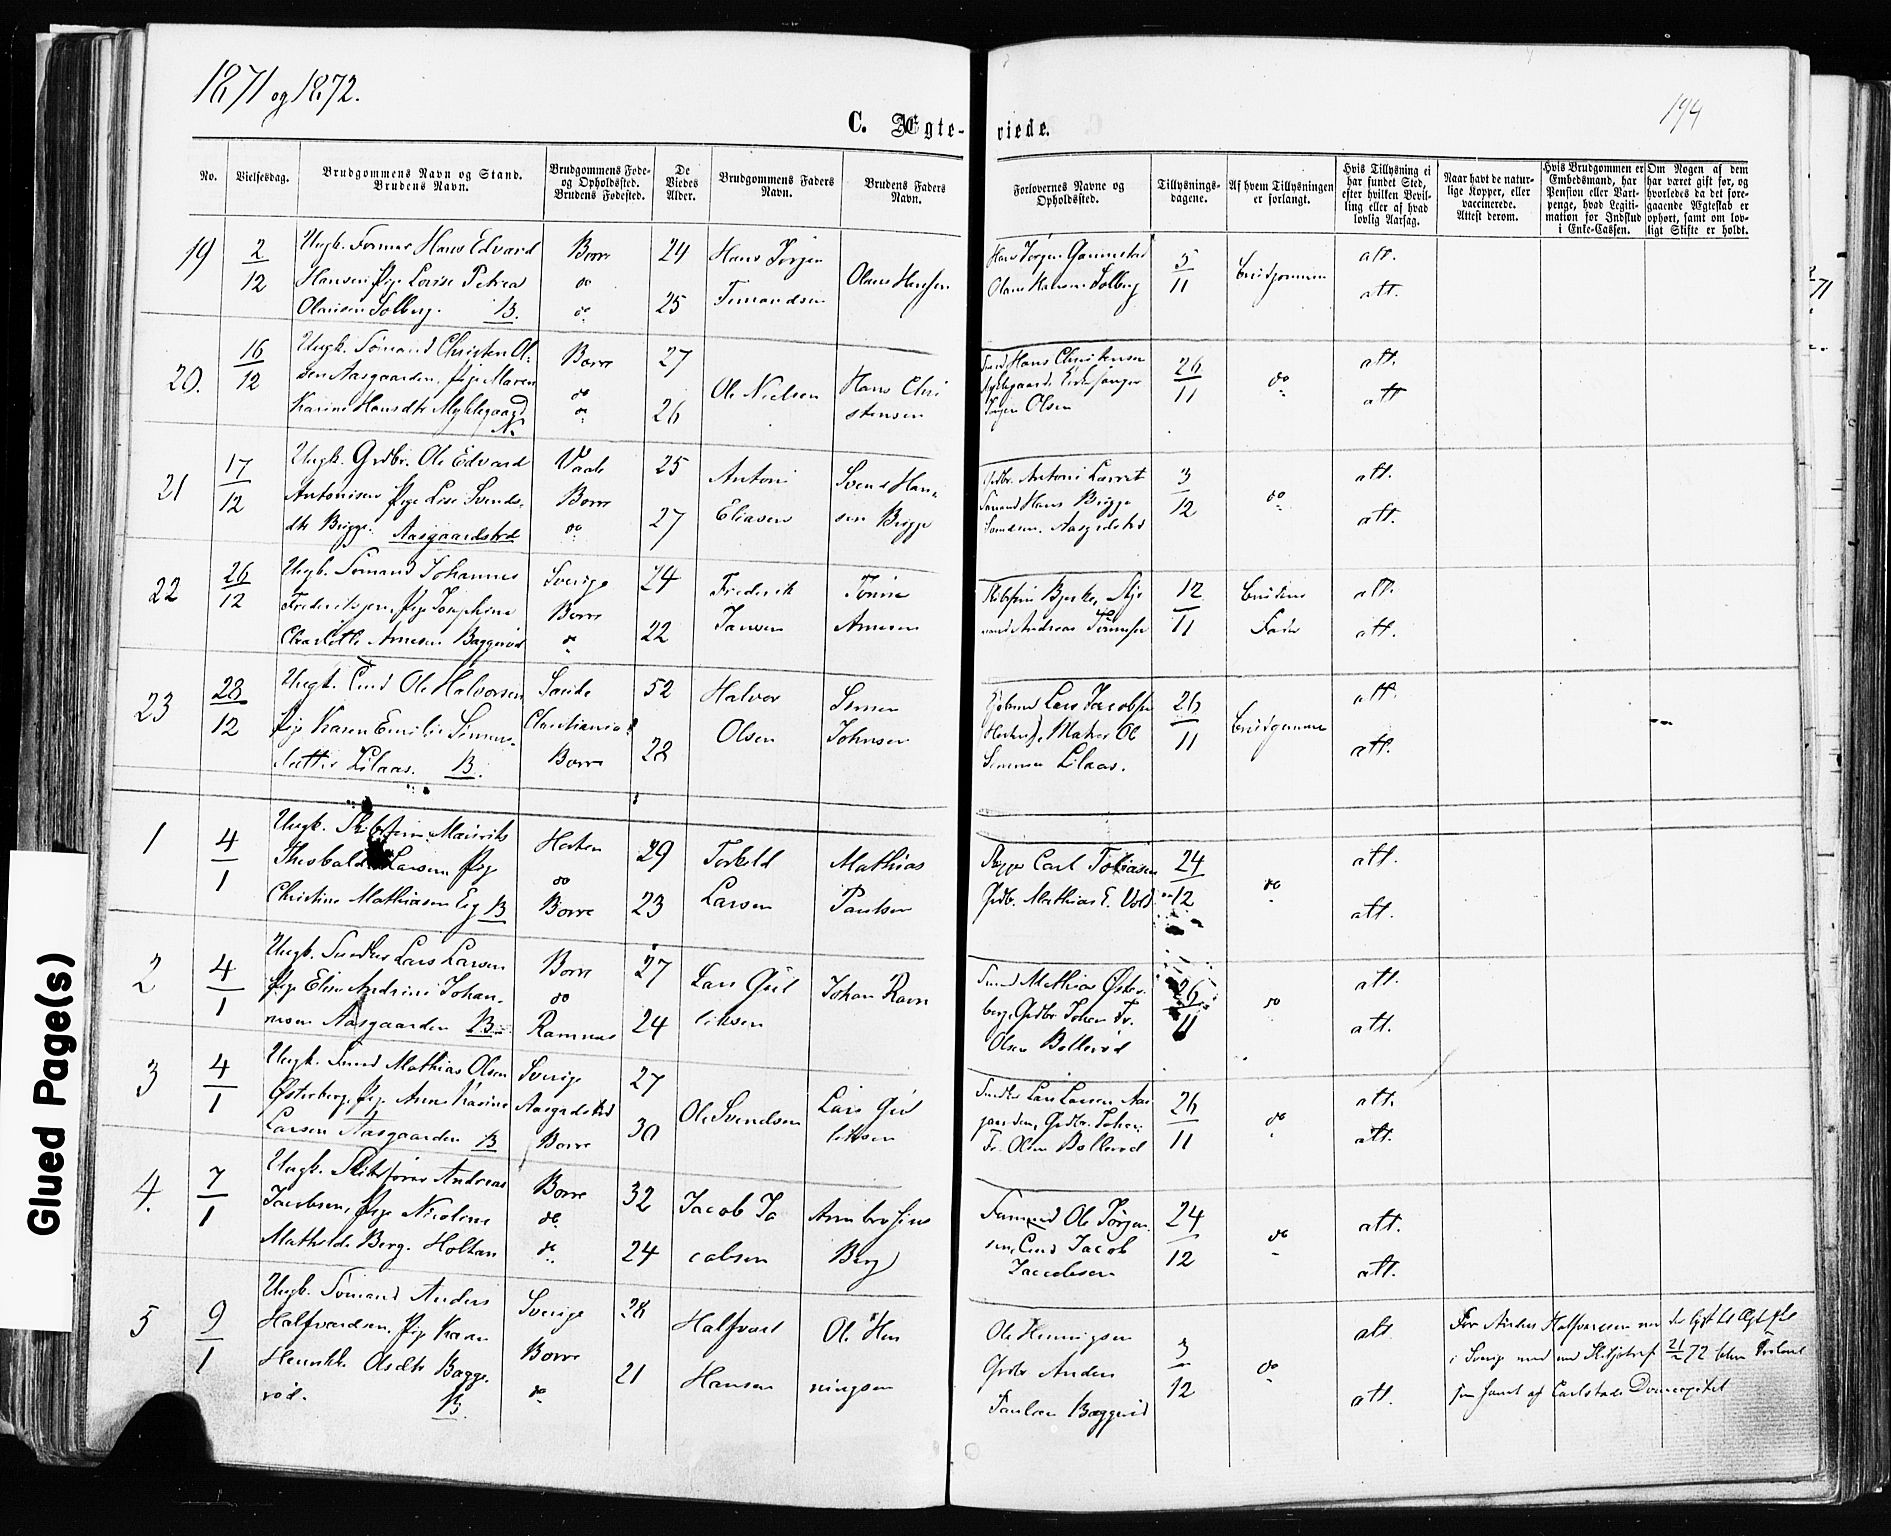 1871 og 1872.
194
C. Ægte-
viede.
No.
Vielsesdag.
Brudgommens Navn og Stand.
Brudens Navn.
Brudgommens Føde-
og Opholdssted.
Brudens Fødested.
De
Viedes
Alder.
Brudgommens Faders
Navn.
Brudens Faders
Navn.
Forlovernes Navne og
Opholdssted.
Tillysnings-
dagene.
Af hvem Tillysningen
er forlangt.
Hvis Tillysning ei
har fundet Sted,
efter hvilken Bevil-
ling eller af hvad
lovlig Aarsag.
Naar havt de natur-
lige Kopper, eller
vaccinerede.
Attest derom.
Hvis Brudgommen er
Embedsmand, har
Pension eller Vart-
penge, hvad Legiti-
mation for Indskud
i Enke-Cassen.
Om Nogen af dem
har været gift før, og
hvorledes da det fore-
gaaende Ægteskab er
ophørt, samt om lov-
ligt Skifte er holdt.
19
2/12
Ungk. Hans Edvard
Hansen Pige Lovise Petrea
Olausen Solberg. B.
Borre
do
do
24
25
Hans Jørgen
Olaus Hansen
Hans Jørgen
Olaus Hansen Solberg
5/11
Brudgommen
att.
att.
20.
16/12
Ungk. Sømand Christen Ol-
sen Aasgaarden, Pige Maren
Karine Hansdtr Myhlegaard
N.
Borre
do
do
27
26
Ole Nielsen
Hans Chri
stensen
Hans Christensen
Olsen
26/11
do
att.
att
21
17/12
Ungk. Grdbr. Ole Edvard
Antonisen Pige Lise Svends-
dtr Brigge. Aasgaardstrd
Vaale
Borre
do
25
27
Antoni
Eliasen
Svend Han-
sen Brigge
Grdbr. Antoni
Sømand Hans Brigge
Aasgrdstrd
3/12
do
att.
att.
22
26/12
Ungk. Sømand Johannes
Frederiksen, Pige Josephine
Charlotte Arnesen Baggerød
Sverige
Borre
do
24
22
Frederik
Jansen
Tønnes
Arnesen
Bjerke,
Andreas Tønnesen
12/11
Brudens
Fader
att.
att.
23
28/12
Ungk. Ole Halvorsen
Pige Karen Emilie Simens-
datter Lilaas. B.
Saude
Christiania?
Borre
52
22
Halvor
Olsen
Simen
Johnsen
Lars Jacobsen
Horten, Matros Ol
Simensen Lilaas.
26/11
Brudgommen
att.
att.
1
4/1
Ungk. Mauritz
Theobald Larsen, Pige
Christine Mathiasen Eeg B
Horten
do
Borre
29
23
Torkeld
Larsen
Mathias
Paulsen
Carl Tobiasen
Grdbr. Mathias E. Vold
24/12
do
att.
att.
2
4/1
Ungk. Lars Larsen
Pige Elen Andrine Johan-
nesen Aasgaarden B.
Borre
do
Ramnæs
27
24
Lars Gul
liksen
Johan Ravn
Mathias Øster-
berg, Grdbr. Johan Fr.
Olsen Bollerød
26/11
do
att.
att.
3
4/1
Ungk. Mathias Olsen
Østerberg, Pige Anne Karine
Larsen Aasgaarden B
Sverige
Aasgrdstrd
Borre
27
30
Ole Svendsen
Lars Gul
liksen
Lars Larsen Aas-
gaarden, Grdbr. Johan
Fr. Olsen Bollerød
26/11
do
att.
att.
4.
7/1
Ungk. Skibsfører Andreas
Jacobsen, Pige Nicoline
Mathilde Berg. Holtan
Borre
do
do
32
24
Jacob Ja
cobsen
Ambrosius
Berg
Ole Jørgen-
sen, Jacob
Jacobsen
24/12
do
att.
att.
5
9/1
Ungk. Sømand Anders
Halfvardsen, Pige Karen
Henrikke Olsdtr Bagge-
rød. B
Sverige
Borre
do
28
21
Halfvard
Hansen
Ole Hen
ningsen
Ole Henningsen
Grdbr Anders
Paulsen Baggerød
3/12
do
att
att.
For Anders Halfvardsen
i Sverige 21/2 72
af Carlstads Domcapitel
Glued Page(s)